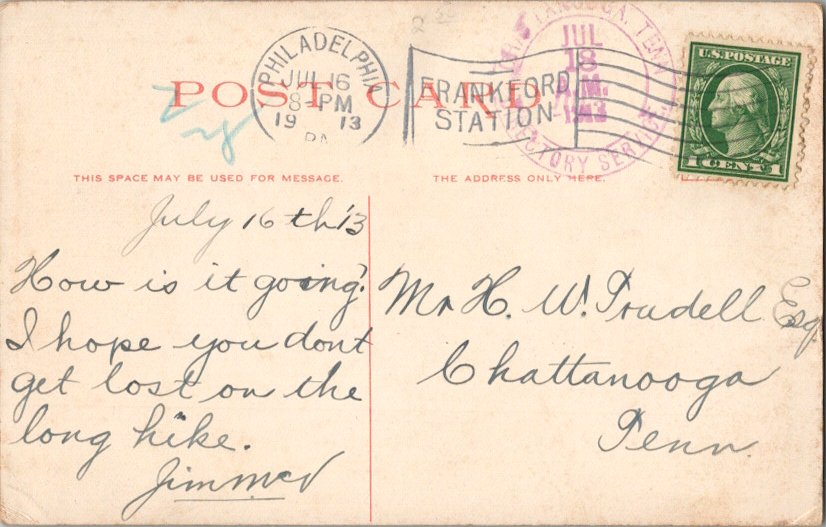 POST CARD
PHILADELPHIA
JUL 16
8-PM
19 13
PA.
FRANKFORD
STATION
TENN.
JUL
18
1913
DIRECTORY SERVICE
U.S. POSTAGE
1 CENT 1
THIS SPACE MAY BE USED FOR MESSAGE.
THE ADDRESS ONLY HERE.
July 16th '13
How is it going?
I hope you dont
get lost on the
long hike.
Mr H. W. Trudell Esq.
Chattanooga
Tenn.